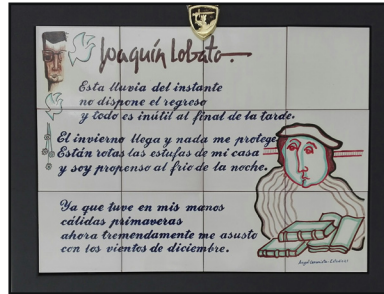 Joaquín Lobato
Esta lluvia del instante
no dispone el regreso
y todo es inútil al final de la tarde.
El invierno llega y nada me protege
Están rotas las estufas de mi casa
y soy propenso al frío de la noche.
Ya que tuve en mis manos
cálidas primaveras
ahora tremendamente me asusto
con los vientos de diciembre.